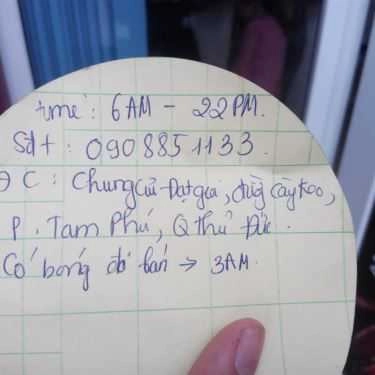 time: 6AM - 22PM.
Sdt: 0908851133.
ĐC: Chung cư Đạt gia, đường Cây Keo,
P. Tam Phú, Q Thủ Đức.
Có bóng đá bán → 3AM.